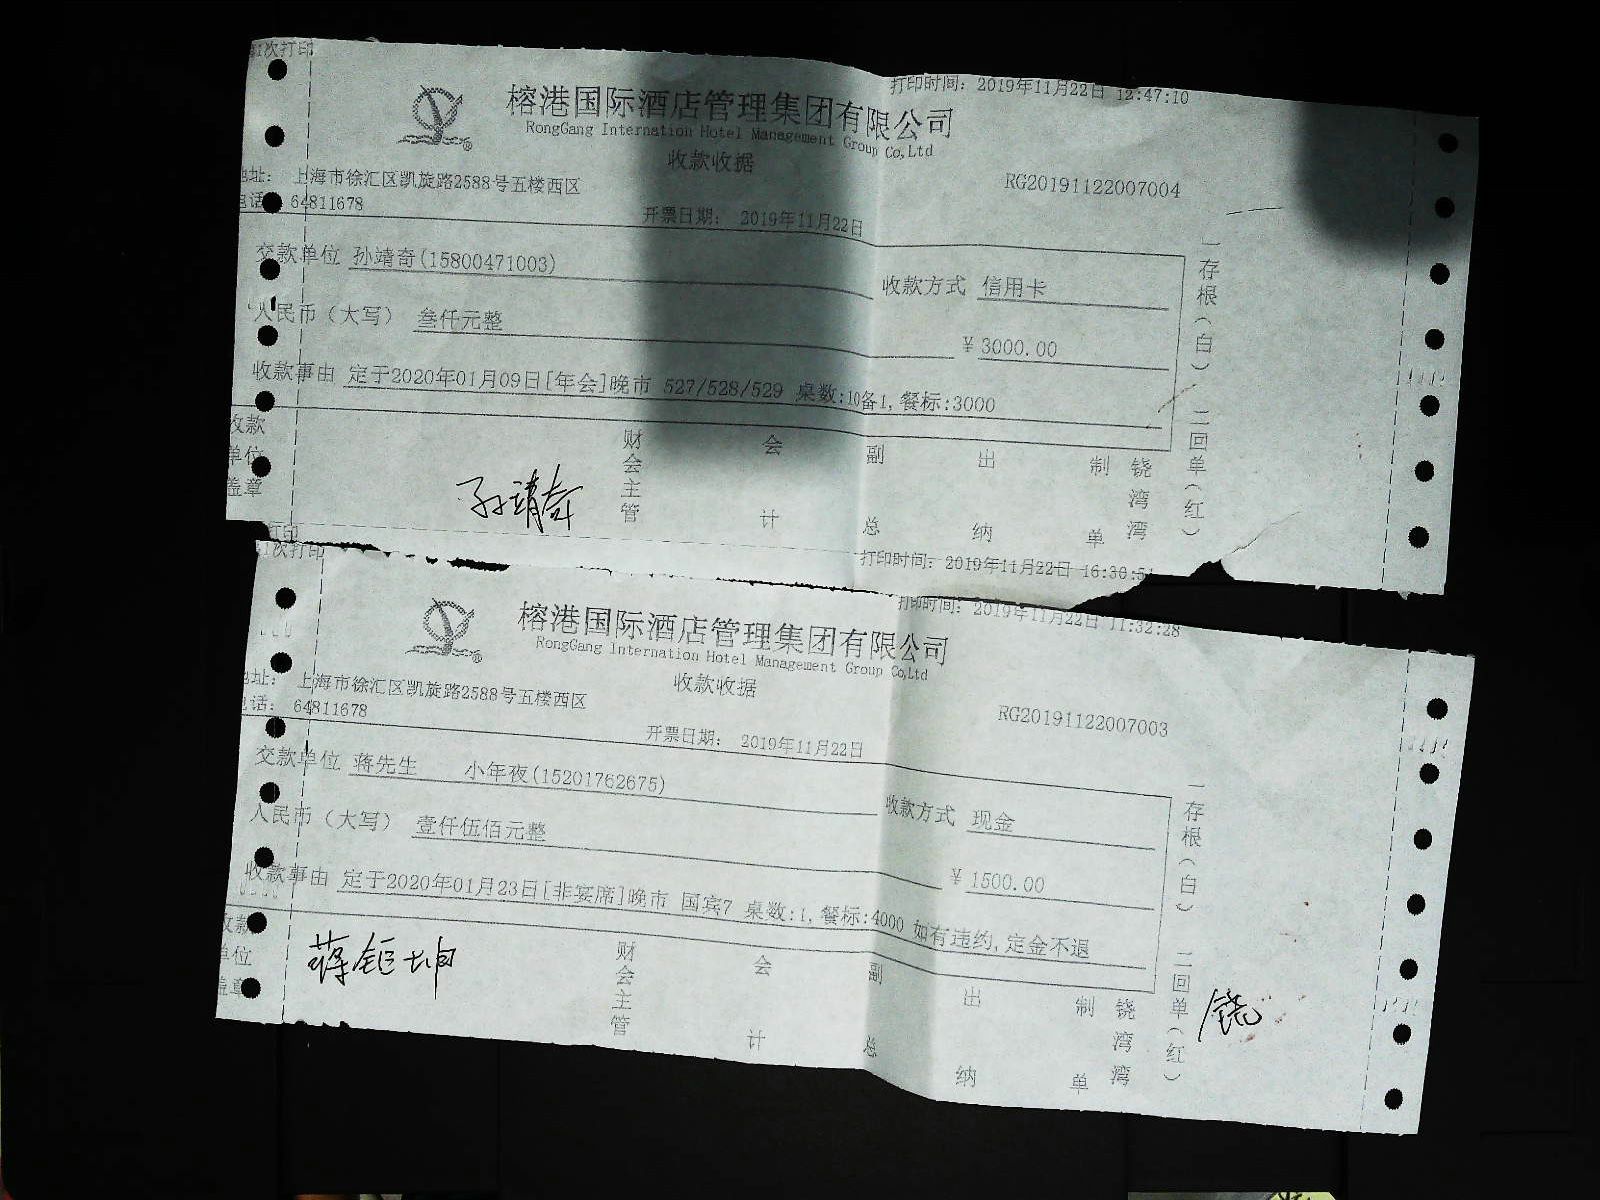 第1次打印
打印时间：2019年11月22日 12:47:10
榕港国际酒店管理集团有限公司
RongGang Internation Hotel Management Group Co,Ltd
收款收据
地址： 上海市徐汇区凯旋路2588号五楼西区
RG20191122007004
电话： 64811678
开票日期： 2019年11月22日
交款单位 孙靖奇(15800471003)
收款方式 信用卡
人民币（大写） 叁仟元整
￥3000.00
收款事由 定于2020年01月09日[年会]晚市 527/528/529 桌数:10备1,餐标:3000
一存根（白）、二回单（红）
收款单位盖章
孙靖奇
财会主管
会计
副总
出纳
制单
铙湾湾
打印
打印时间：2019年11月22日 16:30:51
第1次打印
打印时间：2019年11月22日 11:32:28
榕港国际酒店管理集团有限公司
RongGang Internation Hotel Management Group Co,Ltd
收款收据
地址： 上海市徐汇区凯旋路2588号五楼西区
RG20191122007003
电话： 64811678
开票日期： 2019年11月22日
交款单位 蒋先生 小年夜(15201762675)
收款方式 现金
人民币（大写） 壹仟伍佰元整
￥1500.00
收款事由 定于2020年01月23日[非宴席]晚市 国宾7 桌数:1,餐标:4000 如有违约,定金不退
一存根（白）、二回单（红）
收款单位盖章
蒋钜坤
财会主管
会计
副总
出纳
制单
铙湾湾
铙